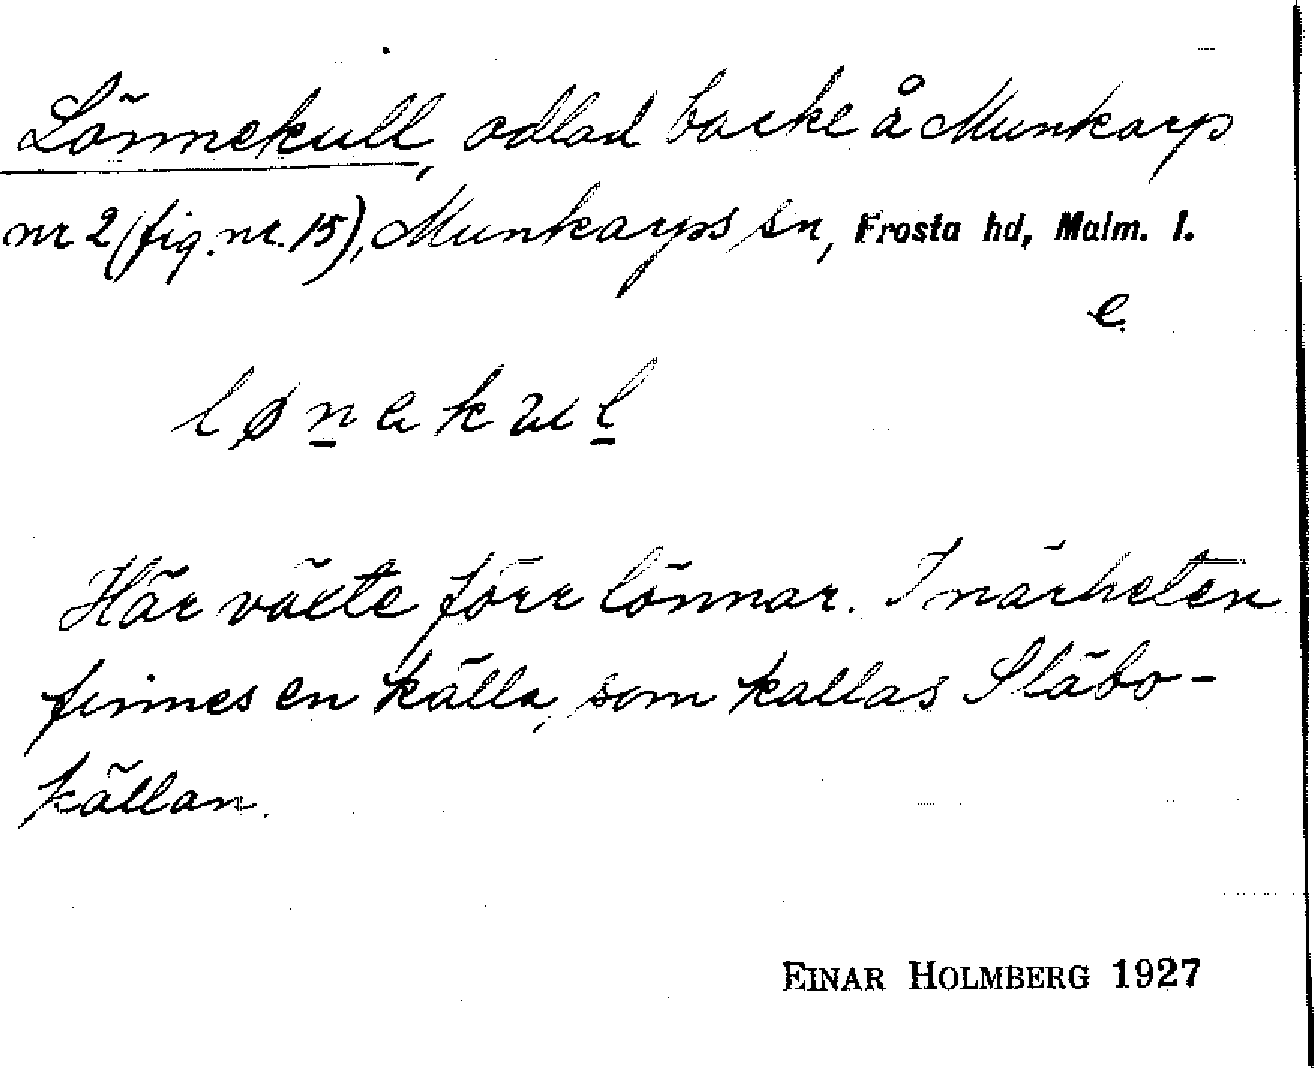 Lönnekull, odlad backe å Munkarp
nr 2 (fig. nr. 15), Munkarps sn, Frosta hd, Malm. l.
e
lønekul
Här växte förr lönnar. I närheten
finnes en källa, som kallas Släbo-
källan.
EINAR HOLMBERG 1927